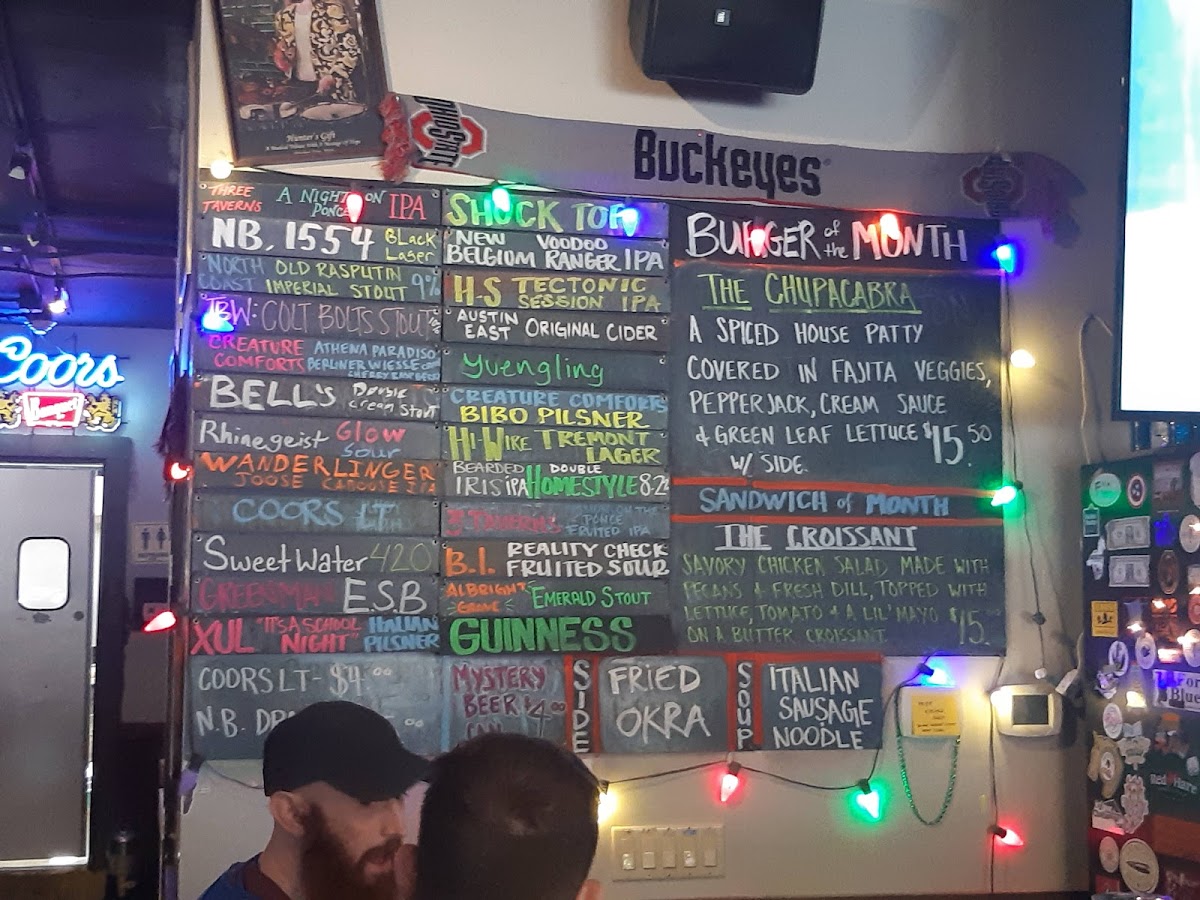 Hunter's Gift
OHIO STATE
BUCKEYES
Coors
THREE TAVERNS A NIGHT ON PONCE IPA
NB. 1554 BLACK LAGER
NORTH COAST OLD RASPUTIN IMPERIAL STOUT 9%
TBW: COLT BOLTS STOUT
CREATURE COMFORTS ATHENA PARADISO
BERLINER WIESSE
BELL'S Double cream Stout
Rhinegeist Glow sour
WANDERLINGER
COORS LT
SweetWater 420
GREEN MAN E.S.B
XUL "IT'S A SCHOOL NIGHT" ITALIAN PILSNER
COORS LT - $4.00
N.B.
SHOCK TOP
NEW BELGIUM VOODOO RANGER IPA
H-S TECTONIC SESSION IPA
AUSTIN EAST ORIGINAL CIDER
Yuengling
CREATURE COMFORTS
BIBO PILSNER
HI-WIRE TREMONT LAGER
BEARDED IRIS IPA DOUBLE HOMESTYLE 8.2%
3 TAVERNS PONCE FRUITED IPA
B.I. REALITY CHECK FRUITED SOUR
ALBRIGHT GROVE EMERALD STOUT
GUINNESS
MYSTERY
BEER $4.00
CAN
SIDE
FRIED
OKRA
SOUP
ITALIAN
SAUSAGE
NOODLE
BURGER of the MONTH
THE CHUPACABRA
A SPICED HOUSE PATTY
COVERED IN FAJITA VEGGIES,
PEPPERJACK, CREAM SAUCE
& GREEN LEAF LETTUCE $15.50
W/ SIDE.
SANDWICH of MONTH
THE CROISSANT
SAVORY CHICKEN SALAD MADE WITH
PECANS & FRESH DILL, TOPPED WITH
LETTUCE, TOMATO & A LIL' MAYO $15.
ON A BUTTER CROISSANT.
Red Hare